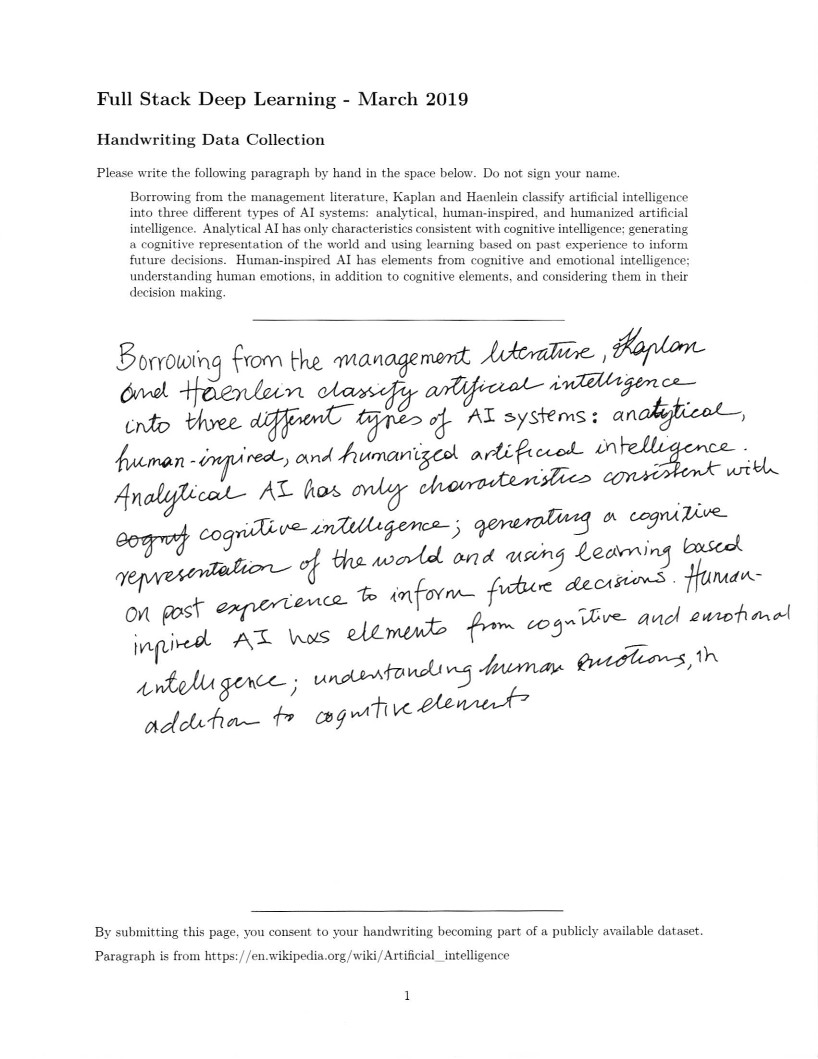 Full Stack Deep Learning - March 2019
Handwriting Data Collection
Please write the following paragraph by hand in the space below. Do not sign your name.
Borrowing from the management literature, Kaplan and Haenlein classify artificial intelligence
into three different types of AI systems: analytical, human-inspired, and humanized artificial
intelligence. Analytical AI has only characteristics consistent with cognitive intelligence; generating
a cognitive representation of the world and using learning based on past experience to inform
future decisions. Human-inspired AI has elements from cognitive and emotional intelligence;
understanding human emotions, in addition to cognitive elements, and considering them in their
decision making.
Borrowing from the management literature, Kaplan
and Haenlein classify artificial intelligence
into three different types of AI systems: analytical,
human-inpired, and humanized artificial intelligence.
Analytical AI has only characteristics consistent with
cognitive intelligence; generating a cognitive
representation of the world and using learning based
on past experience to inform future decisions. Human-
inpired AI has elements from cognitive and emotional
intelligence; understanding human emotions, in
addition to cognitive elements
By submitting this page, you consent to your handwriting becoming part of a publicly available dataset.
Paragraph is from https://en.wikipedia.org/wiki/Artificial_intelligence
1